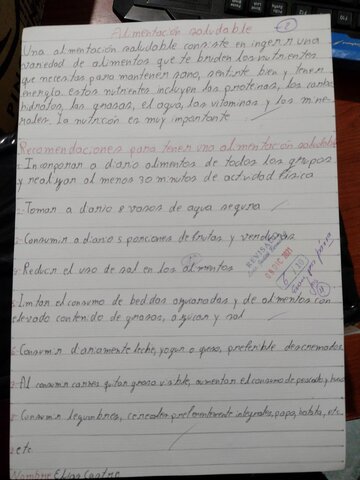 Alimentación saludable
2
Una alimentación saludable consiste en ingerir una
variedad de alimentos que te briden los nutrientes
que necesitas para mantener sano, sentirte bien y tener
energía. Estos nutrientes incluyen las proteinas, los carbo
hidratos, las grasas, el agua, las vitaminas y los mine-
rales. La nutrición es muy importante
Recomendaciones para tener una alimentación saludable
Incorporar a diario alimentos de todos los grupos
y realizar al menos 30 minutos de actividad física
Tomar a diario 8 vasos de agua segura
Consumir a diario 5 porciones de frutas y verduras
Reducir el uso de sal en los alimentos
REVISADO
09 DIC 2021
Limitar el consumo de bebidas azucaradas y de alimentos con
elevado contenido de grasas, azucar y sal
Consumir diariamente leche, yogur o queso, preferible descremados
Al consumir carnes quitar grasa visible, aumentar el consumo de pescado y
Consumir legumbres, cereales preferentemente integrales, papa, batata, etc.
etc
Nombre: Elkin Castro